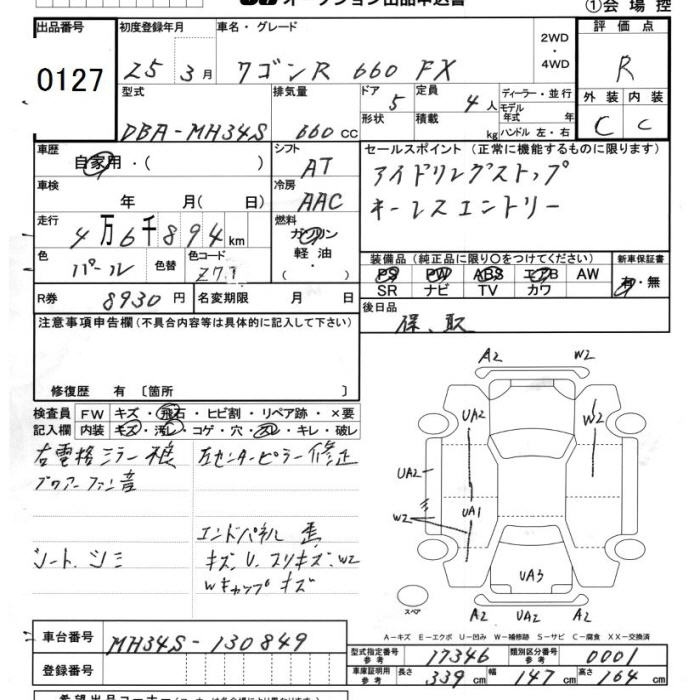 オークション出品申込書
①会場控
出品番号 初度登録年月 車名・グレード 2WD・4WD 評価点
0127 25 3月 ワゴンR 660 FX R
型式 排気量 ドア 5 定員 4人 ディーラー・並行 外装 内装
DBA-MH34S 660 CC 形状 積載 kg モデル年式 年式 ハンドル 左・右 C C
車歴 シフト セールスポイント(正常に機能するものに限ります)
自家用・( ) AT アイドリングストップ
車検 冷房 キーレスエントリー
年 月( 日) AAC
走行 燃料
4万6千894km ガソリン
色 色替 色コード 軽油 装備品(純正品に限り○をつけてください) 新車保証書
パール Z7T ・( ) PS PW ABS エアB AW 有・無
SR ナビ TV カワ
R券 8930円 名変期限 月 日 後日品
注意事項申告欄(不具合内容等は具体的に記入して下さい) 保、取
修復歴 有 〔箇所 〕
検査員 FW キズ・飛石・ヒビ割・リペア跡・×要
記入欄 内装 キズ・汚レ・コゲ・穴・スレ・キレ・破レ
右電格ミラー損 左センターピラー修正
ブロアーファン音
エンドパネル歪
シート、シミ キズ、U、スリキズ、W2
Wキャップキズ
A2 W2
UA2 W2
UA2
W2 UA1
UA3
スペア A2 UA2 A2
A−キズ E−エクボ U−凹み W−補修跡 S−サビ C−腐食 XX−交換済
車台番号 MH34S-130849
型式指定番号 参考 17346 類別区分番号 参考 0001
登録番号
車庫証明用 参考 長さ 339cm 幅 147cm 高さ 164cm
希望出品コーナー